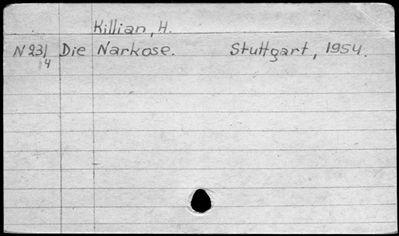 Killian, H.
N 231 Die Narkose. Stuttgart, 1954.
14